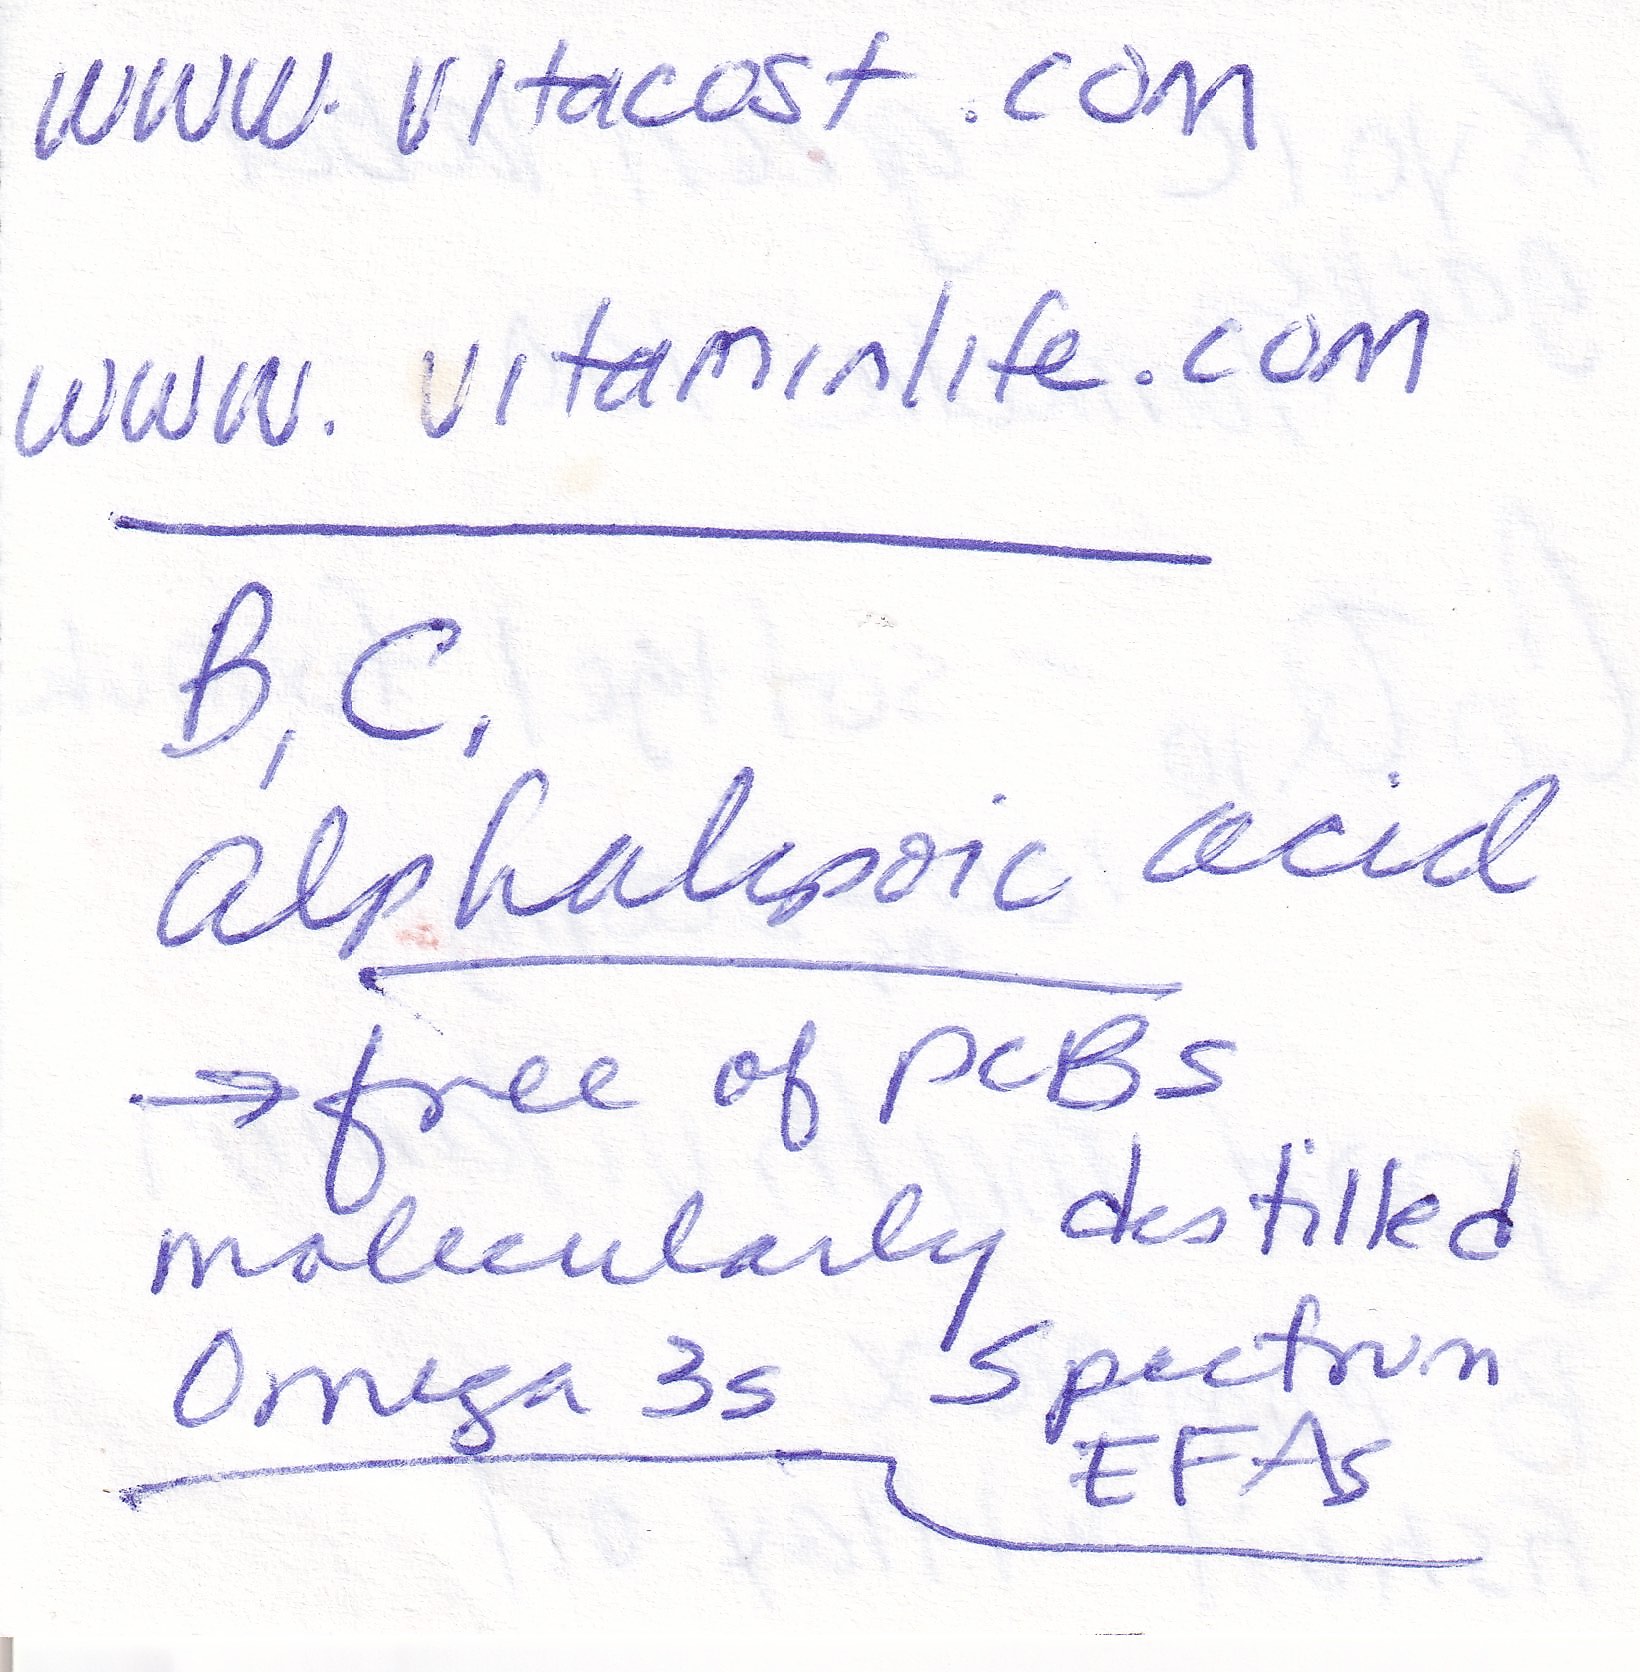 www.vitacost.com
www.vitaminlife.com
B, C,
alphalipoic acid
→ free of PCBs
molecularly distilled
Omega 3s Spectrum
EFAs